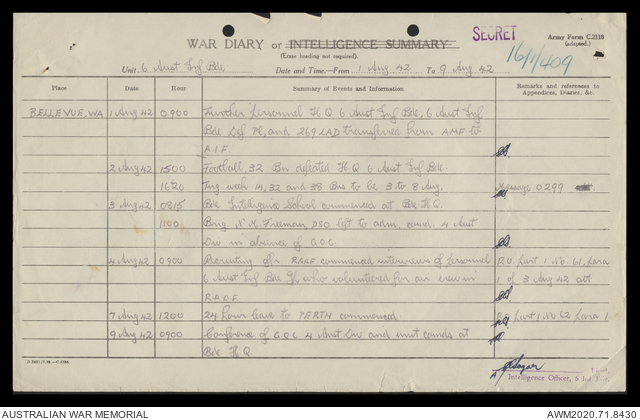 SECRET
Army Form C.2118
(adapted.)
WAR DIARY or INTELLIGENCE SUMMARY
(Erase heading not required).
16/1/409
Unit 6 Aust Inf Bde Date and Time—From 1 Aug 42 To 9 Aug 42
Place Date Hour Summary of Events and Information Remarks and references to
Appendices, Diaries, &c.
BELLEVUE, WA 1 Aug 42 0900 Further Personnel H.Q. 6 Aust Inf Bde, 6 Aust Inf
Bde Def Pl, and 269 LAD transferred from AMF to
A.I.F.
2 Aug 42 1500 Football, 32 Bn defeated H.Q. 6 Aust Inf Bde.
1620 Tng week 14, 32 and 38 Bns to be 3 to 8 Aug. Message 0299
3 Aug 42 0815 Bde Intelligence School commenced at Bde H.Q.
1100 Brig. N.M. Freeman, DSO left to adm. comd. 4 Aust
Div in absence of G.O.C.
4 Aug 42 0900 Recruiting offr RAAF commenced interviews of personnel R.O. Part 1 No. 61, Para
6 Aust Inf Bde Gp who volunteered for air crew in 1 of 3 Aug 42 att
R.A.A.F.
7 Aug 42 1200 24 hour leave to PERTH commenced. R.O. Part 1 No 62 Para 1
9 Aug 42 0900 Conference of G.O.C. 4 Aust Div and unit comds at
Bde H.Q.
Intelligence Officer, 6
AUSTRALIAN WAR MEMORIAL AWM2020.71.8430